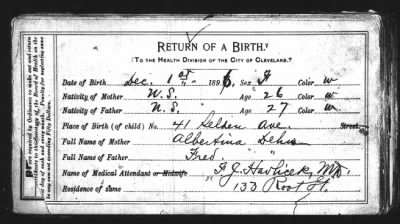 RETURN OF A BIRTH.
(TO THE HEALTH DIVISION OF THE CITY OF CLEVELAND.)
Date of Birth Dec. 1st 1896. Sex F Color W
Nativity of Mother U.S. Age 26 Color W
Nativity of Father U.S. Age 27 Color W
Place of Birth (of child) No. 41 Selden Ave Street
Full Name of Mother Albertina
Full Name of Father Fred. "
Name of Medical Attendant or Midwife F.J. Havlicek, MD.
Residence of same 133 Root St.
are required by Ordinance to make out and return